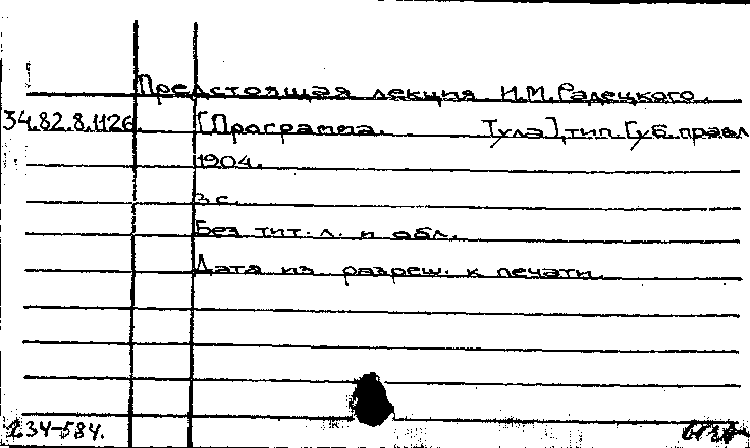 Предстоящая лекция И.М. Радецкого.
34.82.8.1126. [Программа. Тула], тип. Губ. правл
1904.
3 с.
Без тит. л. и обл.
Дата из разреш. к печати.
234-584.